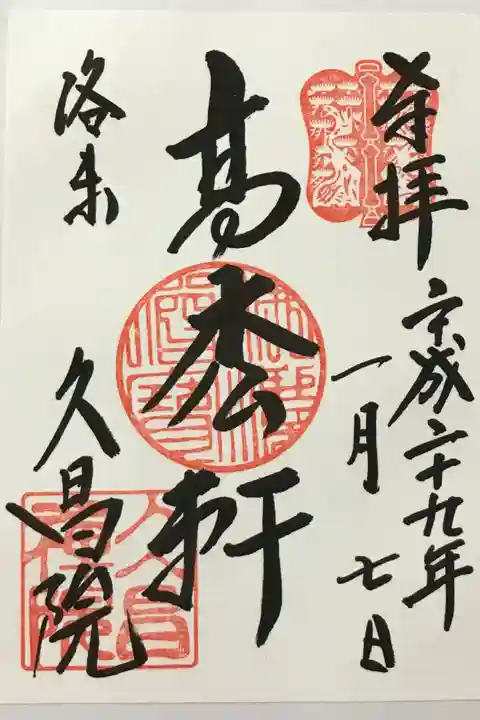 奉拝
平成二十九年
一月七日
高枩軒
洛東
久昌院